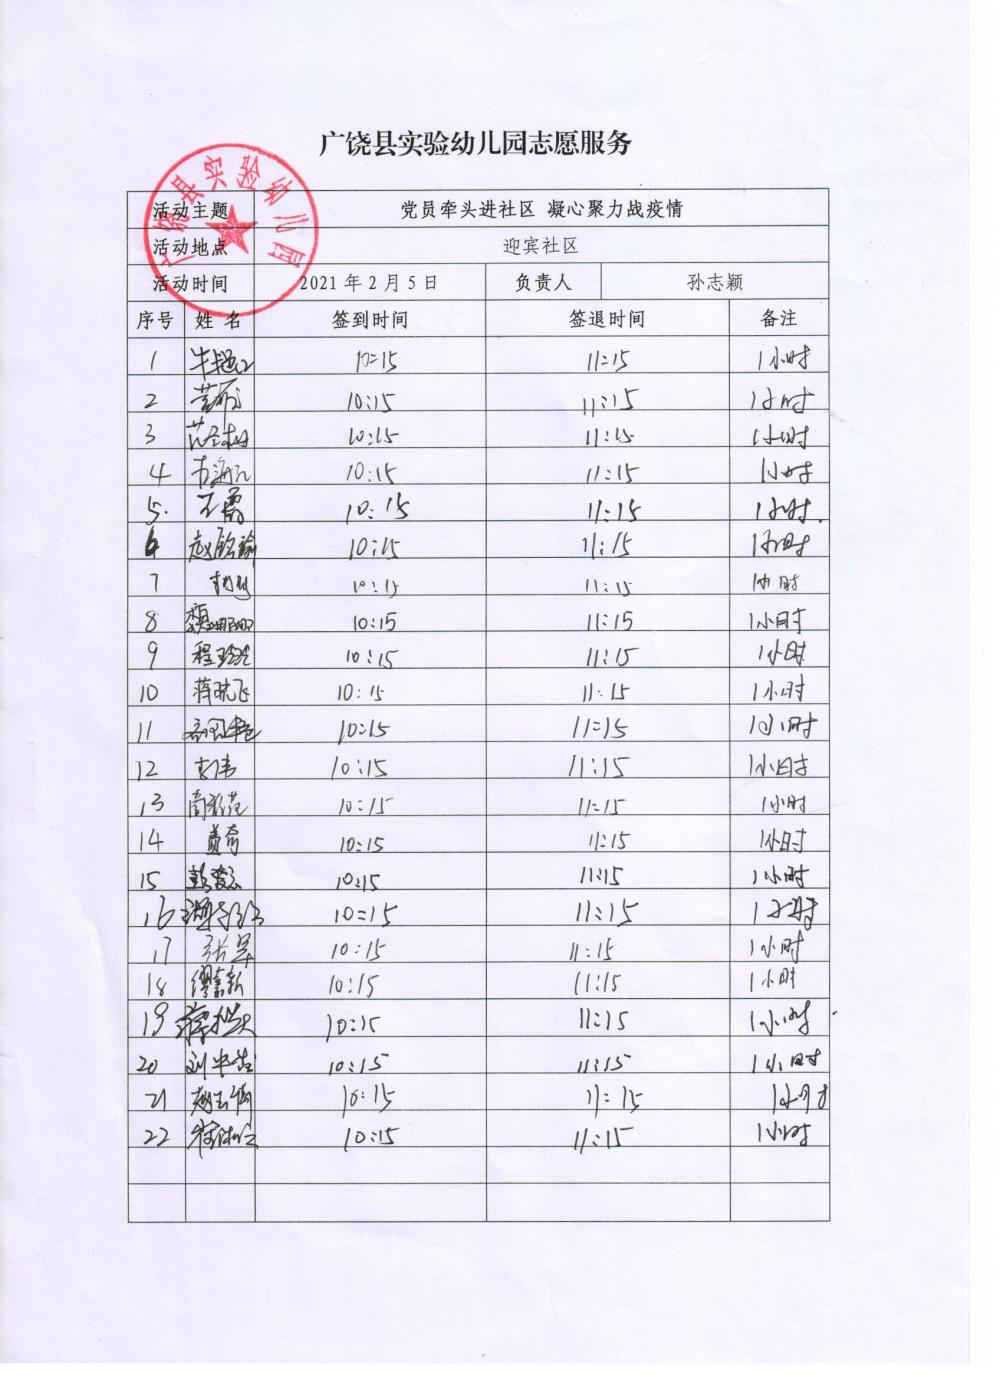 广饶县实验幼儿园志愿服务
广饶县实验幼儿园
活动主题 党员牵头进社区 凝心聚力战疫情
活动地点 迎宾社区
活动时间 2021年2月5日 负责人 孙志颖
序号 姓名 签到时间 签退时间 备注
1 10:15 11:15 1小时
2 10:15 11:15 1小时
3 10:15 11:15 1小时
4 10:15 11:15 1小时
5. 10:15 11:15 1小时.
6 10:15 11:15 1小时
7 10:15 11:15 1小时
8 10:15 11:15 1小时
9 10:15 11:15 1小时
10 蒋晓飞 10:15 11:15 1小时
11 10:15 11:15 1小时
12 李伟 10:15 11:15 1小时
13 10:15 11:15 1小时
14 10:15 11:15 1小时
15 10:15 11:15 1小时
16 10:15 11:15 1小时
17 张翠 10:15 11:15 1小时
18 10:15 11:15 1小时
19 10:15 11:15 1小时
20 10:15 11:15 1小时
21 10:15 11:15 1小时
22 10:15 11:15 1小时